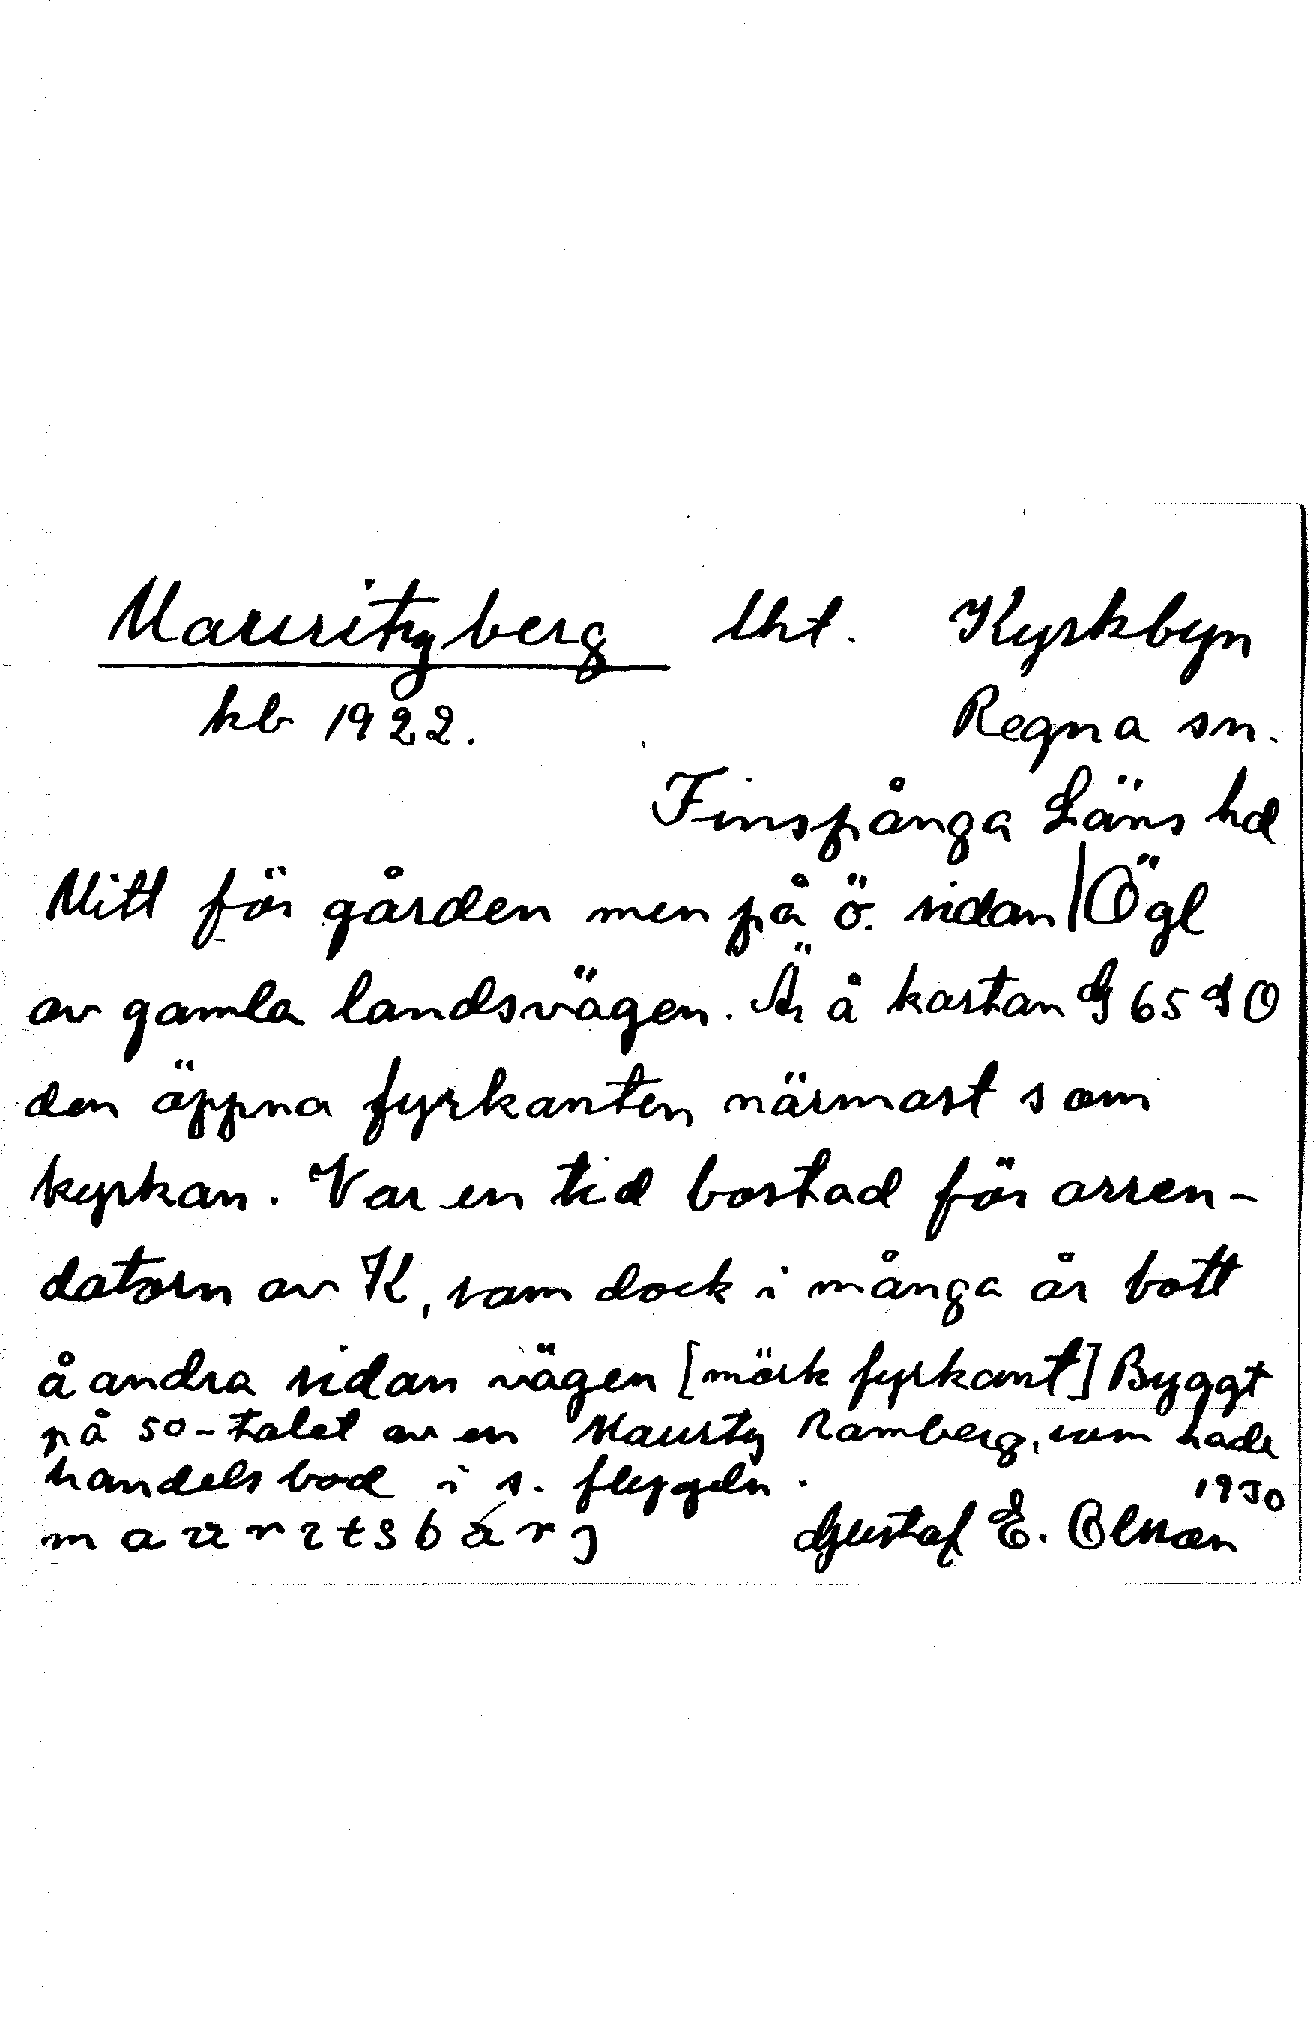 Mauritzberg lht. Kyrkbyn
kb 1922. Regna sn.
Finspånga Läns hd
Mitt för gården men på ö. sidan | Ögl
av gamla landsvägen. Är å kartan G 65 SO
den öppna fyrkanten närmast s om
kyrkan. Var en tid bostad för arren-
datorn av K, som dock i många år bott
å andra sidan vägen [mörk fyrkant] Byggt
på 50-talet av en Mauritz Ramberg, som hade
handelsbod i s. flygeln. 1930
mauritsbárj Gustaf E.